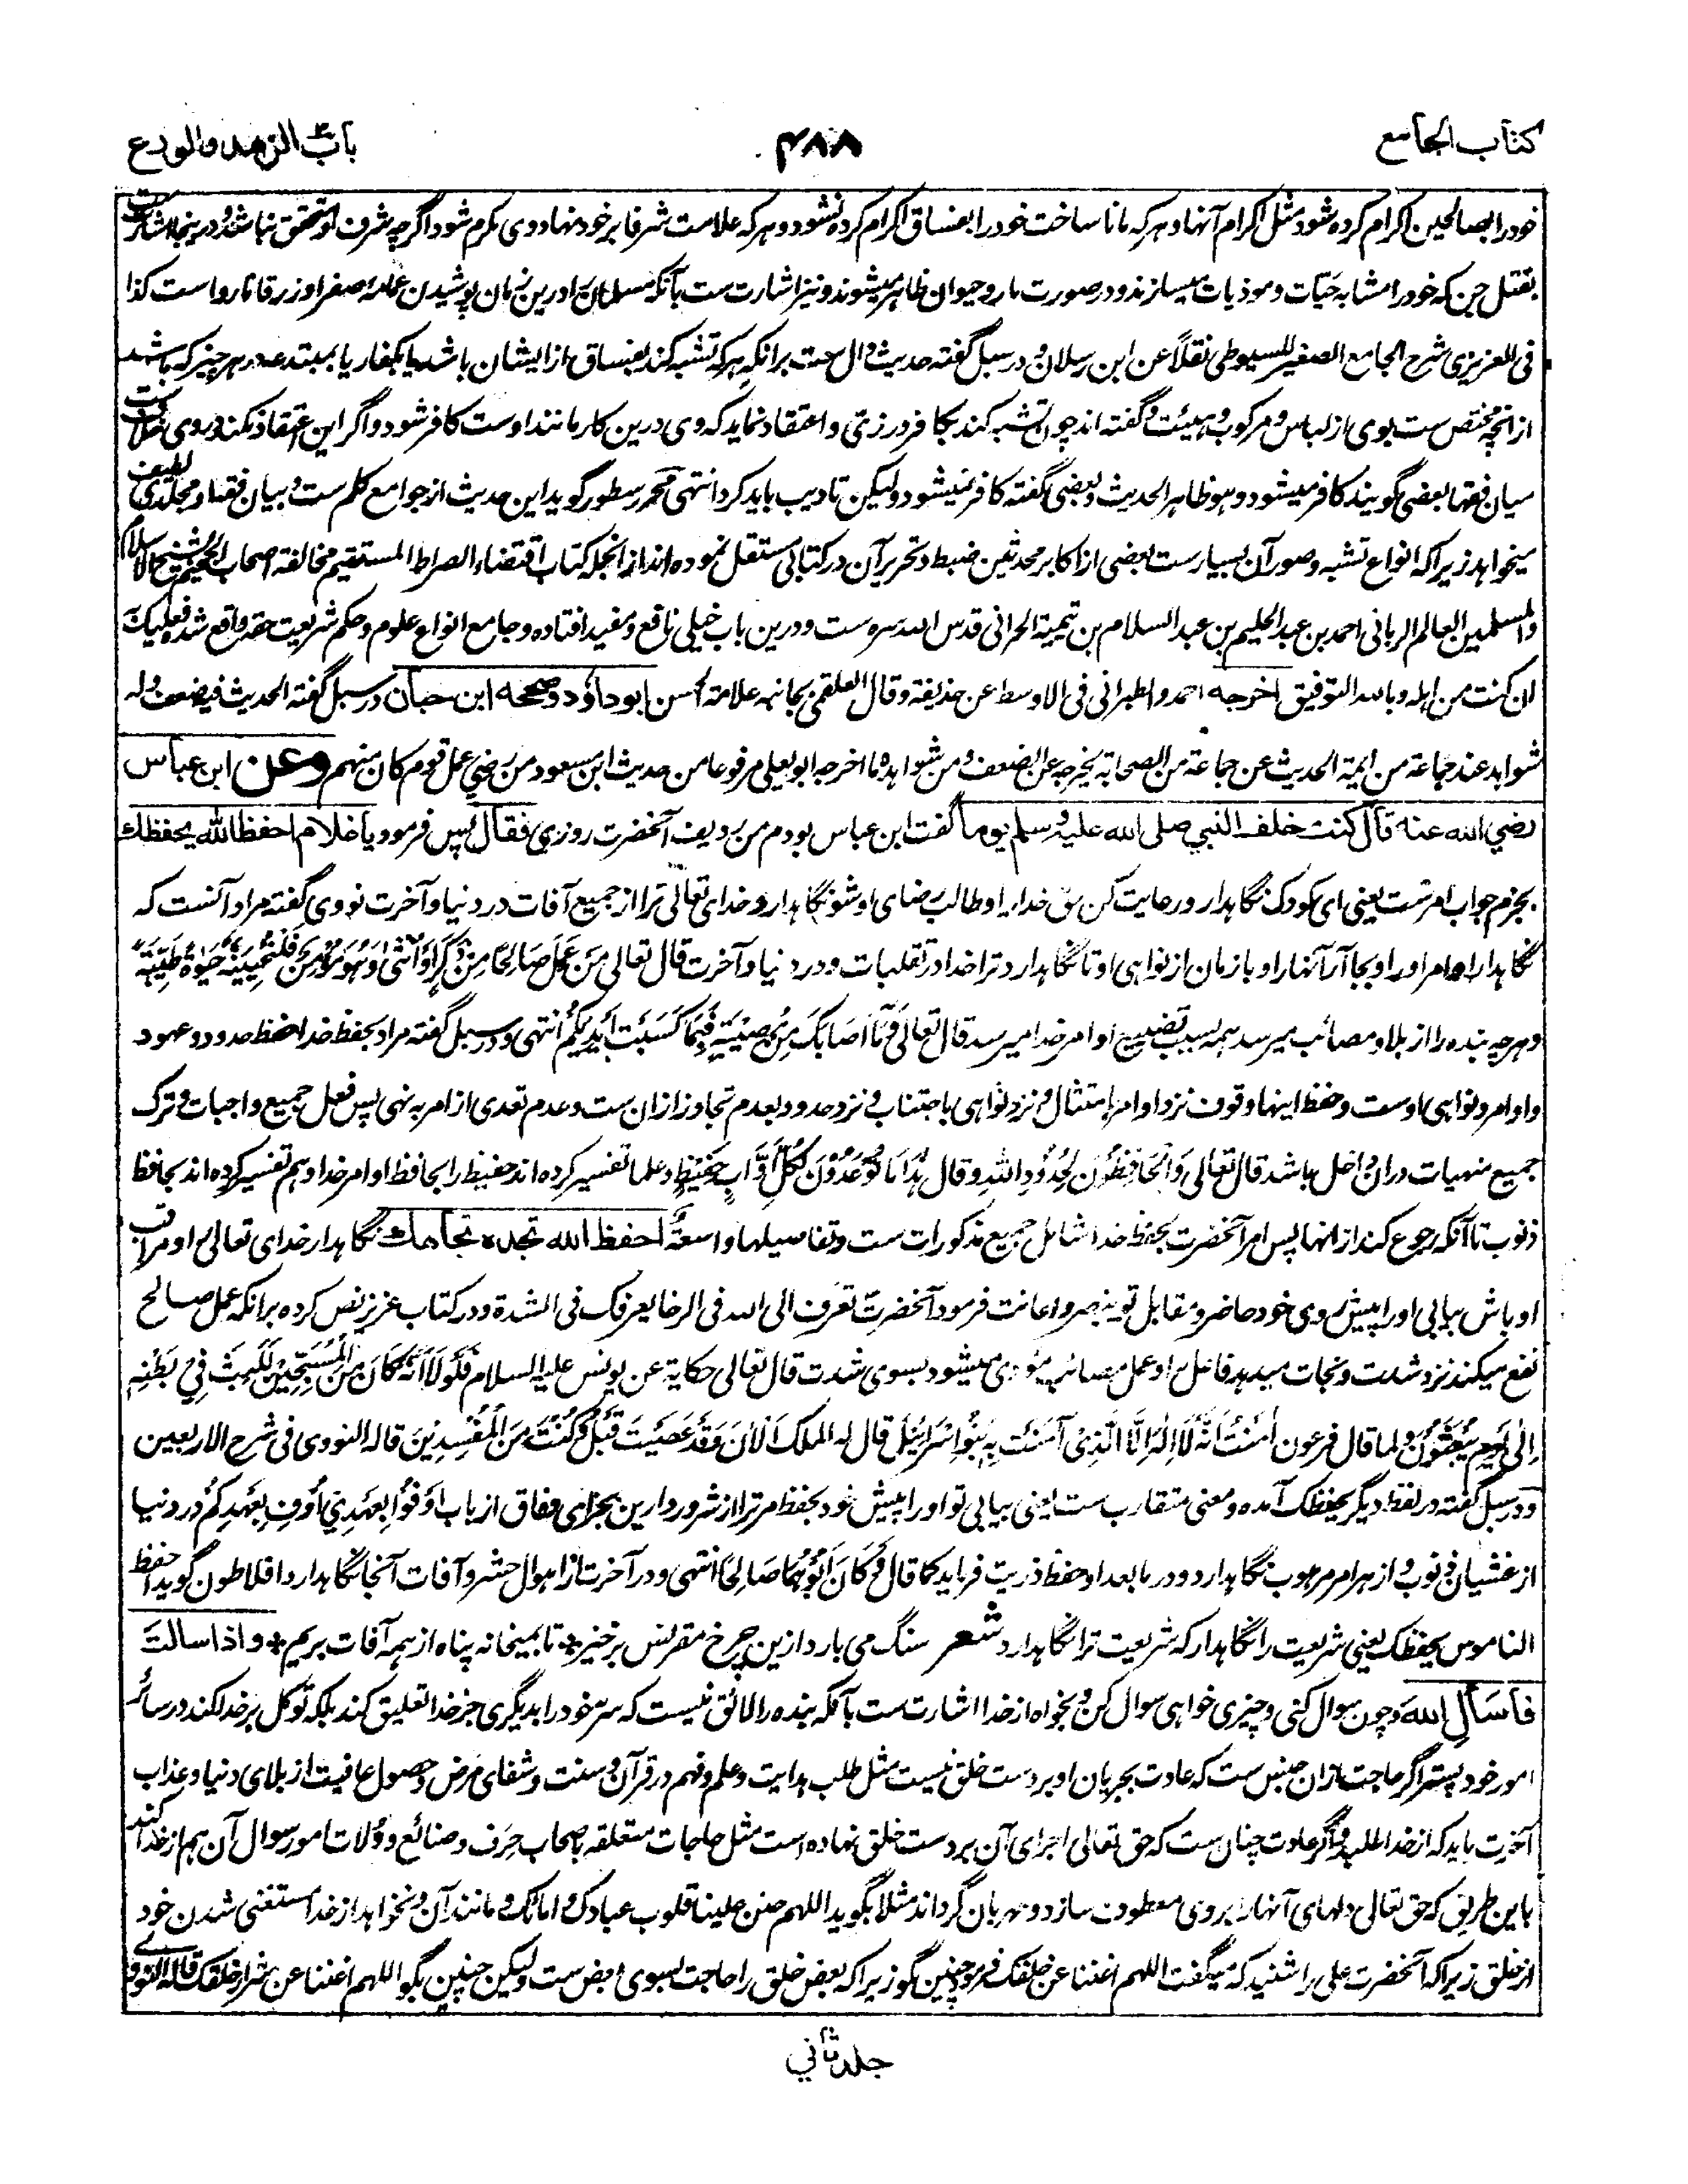 کتاب الجامع
۴۸۸
باب الزهد والورع
خود را بصالحین اکرام کرده شود مثل اکرام آنها و هرکه مانا ساخت خود را بفساق اکرام کرده نشود و هرکه علامت شرفا بر خود نهاد وی مکرم شود اگرچه شرف او متحقق نباشد و درینجا اشارت
بقتل جن که خود را مشابه حیات و موذیات میسازند و در صورت مار و حیوان ظاهر میشوند و نیز اشارت ست بآنکه مسلمان را درین زمان پوشیدن عمامهٔ صفرا و زرقا نارواست کذا
فی العزیزی شرح الجامع الصغیر للسیوطی نقلاً عن ابن رسلان و در سبل گفته حدیث دال ست برانکه هرکه تشبه کند بفساق از ایشان باشد یا بکفار یا بمبتدعه در هر چیز که باشد
از انچه مختص ست بوی از لباس و مرکوب و هیئت و گفته اند چون تشبه کند بکافر در زی و اعتقاد نماید که وی درین کار مانند اوست کافر شود و اگر این اعتقاد نکند در وی خلاف ست
میان فقها بعضی گویند کافر میشود و هو ظاهر الحدیث و بعضی گفته کافر نمیشود ولیکن تادیب باید کرد انتهی محرر سطور گوید این حدیث از جوامع کلم ست و بیان فقه او مجلدی لطیف
میخواهد زیراکه انواع تشبه و صور آن بسیارست بعضی از اکابر محدثین ضبط و تحریر آن در کتابی مستقل نموده اند از انجمله کتاب اقتضاء الصراط المستقیم مخالفة اصحاب الجحیم شیخ الاسلام
والمسلمین العالم الربانی احمد بن عبدالحلیم بن عبد السلام بن تیمیة الحرانی قدس الله سره ست و درین باب خیلی نافع و مفید افتاده و جامع انواع علوم و حکم شریعت حقه واقع شده فعلیک به
ان کنت من اهله و بالله التوفیق اخرجه احمد والطبرانی فی الاوسط عن حذیفة وقال العلقمی بجانبه علامة الحسن ابو داؤد وصححه ابن حبان در سبل گفته الحدیث فیه ضعف وله
شواهد عند جماعة من ایمة الحدیث عن جماعة من الصحابة یخرجه عن الضعف و من شواهده ما اخرجه ابو یعلی مرفوعا من حدیث ابن مسعود من رضی عمل قوم کان منهم وعن ابن عباس
رضي الله عنه قال كنت خلف النبي صلى الله عليه وسلم يوما گفت ابن عباس بودم من ردیف آنحضرت روزی فقال پس فرمود يا غلام احفظ الله يحفظك
بجزم جواب امرست یعنی ای کودک نگاهدار و رعایت کن حق خدا را و طالب رضای او شو نگاهدارد خدای تعالی ترا از جمیع آفات در دنیا و آخرت نووی گفته مراد آنست که
نگاهدار اوامر او را و بجا آر آنها را و بازمان از نواهی او تا نگاهدارد ترا خدا در تقلبات و در دنیا و آخرت قال تعالی مَنْ عَمِلَ صَالِحًا مِنْ ذَكَرٍ أَوْ أُنْثَى وَهُوَ مُؤْمِنٌ فَلَنُحْيِيَنَّهُ حَيٰوةً طَيِّبَةً
و هرچه بنده را از بلا و مصائب میرسد همه بسبب تضییع اوامر خدا میرسد قال تعالی وَمَا أَصَابَكُمْ مِنْ مُصِيْبَةٍ فَبِمَا كَسَبَتْ أَيْدِيكُمْ انتهی و در سبل گفته مراد بحفظ خدا حفظ حدود و عهود
و اوامر و نواهی اوست و حفظ اینها وقوف نزد اوامر بامتثال و نزد نواهی باجتناب و نزد حدود بعدم تجاوز ازان ست و عدم تعدی از امر به نهی پس فعل جمیع واجبات و ترک
جمیع منهیات دران داخل باشد قال تعالی وَالْحَافِظُوْنَ لِحُدُوْدِ اللهِ وقال هٰذَا مَا تُوْعَدُوْنَ لِكُلِّ أَوَّابٍ حَفِيْظٍ و علما تفسیر کرده اند حفیظ را بحافظ اوامر خدا و هم تفسیر کرده اند بحافظ
ذنوب تا آنکه رجوع کند از انها پس امر آنحضرت بحفظ خدا شامل جمیع مذکورات ست و تفاصیلها واسعة احفظ الله تجده تجاهك نگاهدار خدای تعالی را و مراقب
او باش بیابی او را پیش روی خود حاضر و مقابل تو بنصر و اعانت فرمود آنحضرت تعرف الی الله فی الرخا یعرفک فی الشدة و در کتاب عزیز نص کرده برانکه عمل صالح
نفع میکند نزد شدت و نجات میدهد فاعل را و عمل مصائب مؤدی میشود بسوی شدت قال تعالی حکایة عن یونس علیه السلام فَلَوْلَا أَنَّهُ كَانَ مِنَ الْمُسَبِّحِيْنَ لَلَبِثَ فِيْ بَطْنِهِ
إِلٰى يَوْمِ يُبْعَثُوْنَ و لما قال فرعون اٰمَنْتُ أَنَّهُ لَا إِلٰهَ إِلَّا الَّذِيْ آمَنَتْ بِهِ بَنُوْا إِسْرَائِيْلَ قال له الملک آلْآنَ وَقَدْ عَصَيْتَ قَبْلُ وَكُنْتَ مِنَ الْمُفْسِدِيْنَ قاله النووی فی شرح الاربعین
و در سبل گفته در لفظ دیگر یحفظک آمده و معنی متقارب ست یعنی بیابی تو او را پیش خود بحفظ مر ترا از شرور دارین بجزای وفاق از باب أَوْفُوْا بِعَهْدِيْ أُوْفِ بِعَهْدِكُمْ در دنیا
از غشیان ذنوب و از هر امر مرهوب نگاهدارد و در ما بعد او حفظ ذریت فرماید کما قال وَكَانَ أَبُوْهُمَا صَالِحًا انتهی و در آخرت از اهوال حشر و آفات آنجا نگاهدارد افلاطون گوید احفظ
الناموس یحفظک یعنی شریعت را نگاهدار که شریعت ترا نگاهدارد شعر سنگ می بارد ازین چرخ مقرنس برخیز * تا بمیخانه پناه از همه آفات بریم * واذا سالت
فاسأل الله و چون سوال کنی و چیزی خواهی سوال کن و بخواه از خدا اشارت ست بآنکه بنده را لائق نیست که سر خود را بدیگری جز خدا تعلیق کند بلکه توکل بر خدا کند در سائر
امور خود پستر اگر حاجت ازان جنس ست که عادت بجریان او بر دست خلق نیست مثل طلب هدایت و علم و فهم در قرآن و سنت و شفای مرض و حصول عافیت از بلای دنیا و عذاب
آخرت باید که از خدا طلبد و اگر عادت چنان ست که حق تعالی اجرای آن بر دست خلق نهاده است مثل حاجات متعلقه باصحاب حِرَف و صنائع و ولات امور سوال آن هم از خدا کند
باین طریق که حق تعالی دلهای آنها را بر وی معطوف سازد و مهربان گرداند مثلا بگوید اللهم حنن علینا قلوب عبادک و امائک و مانند آن و نخواهد از خدا مستغنی شدن خود
از خلق زیراکه آنحضرت علی را شنید که میگفت اللهم اغننا عن خلقک فرمود چنین مگو زیراکه بعض خلق را حاجت بسوی بعض ست ولیکن چنین بگو اللهم اغننا عن شرار خلقک قاله النووی
جلد ثانی